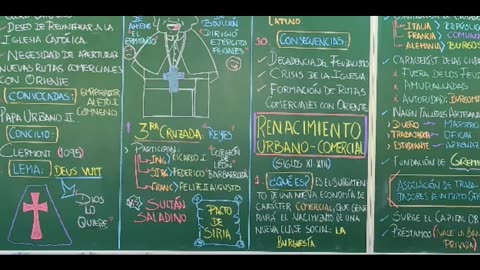 DESEO DE REUNIFICAR A LA
IGLESIA CATÓLICA
NECESIDAD DE APERTURAR
NUEVAS RUTAS COMERCIALES
CON ORIENTE
CONVOCADAS: EMPERADOR
ALEJO I
COMNENO
PAPA URBANO II
CONCILIO:
CLERMONT (1095)
LEMA: DEUS VULT
DIOS
LO
QUIERE
DE
AMIENS
"EL
ERMITAÑO"
BOUILLON
DIRIGIÓ
EJÉRCITOS
FEUDALES
3RA CRUZADA: "REYES"
PARTICIPAN:
ING: RICARDO I "CORAZÓN
DE
LEÓN"
SIRG: FEDERICO I BARBARROJA
FRAN: FELIPE II AUGUSTO
SULTÁN
SALADINO
PACTO
DE
SIRIA
LATINO
10. CONSECUENCIAS:
DECADENCIA DEL FEUDALISMO
CRISIS DE LA IGLESIA
FORMACIÓN DE RUTAS
COMERCIALES CON ORIENTE
RENACIMIENTO
URBANO-COMERCIAL
(SIGLOS XI-XIII)
1. ¿QUÉ ES? ES EL SURGIMIENTO
DE UNA NUEVA ECONOMÍA DE
CARÁCTER COMERCIAL, QUE GENE
RARÁ EL NACIMIENTO DE UNA
NUEVA CLASE SOCIAL: LA
BURGUESÍA
ITALIA
FRANCIA
ALEMANIA
REPÚBLIC
COMUNA
BURGOS
CARACTERÍST. DE LAS CIUDAD
FUERA DE LOS FEU
AMURALLADAS
AUTORIDAD: BURGOM
NACEN TALLERES ARTESANA
DUEÑO MAESTRO
TRABAJADOR OFICIAL
ESTUDIANTE APRENDIZ
FUNDACIÓN DE GREMI
ASOCIACIÓN DE TRABA-
JADORES DE UN MISMO OFIC
SURGE EL CAPITAL
PRÉSTAMOS (NACE LA BAN
PRIVADA)